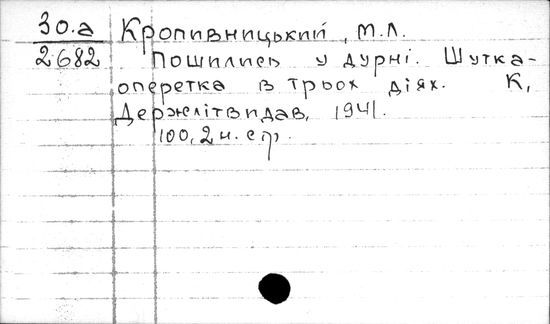 30.а Кропивницький, М.Л.
2682 Пошились у дурні. Шутка-
оперетка в трьох діях. К,
Держлітвидав, 1941.
100, 2 н. стр.